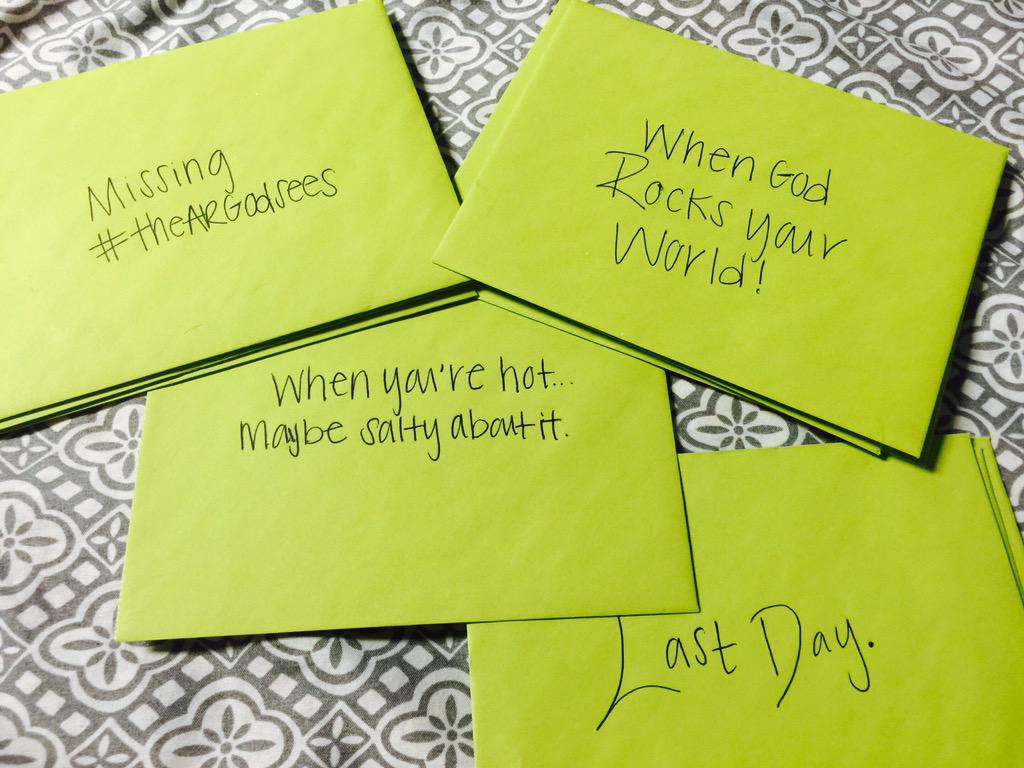 Missing
#theARGodsees
When God
Rocks your
World!
When you're hot...
maybe salty about it.
Last Day.